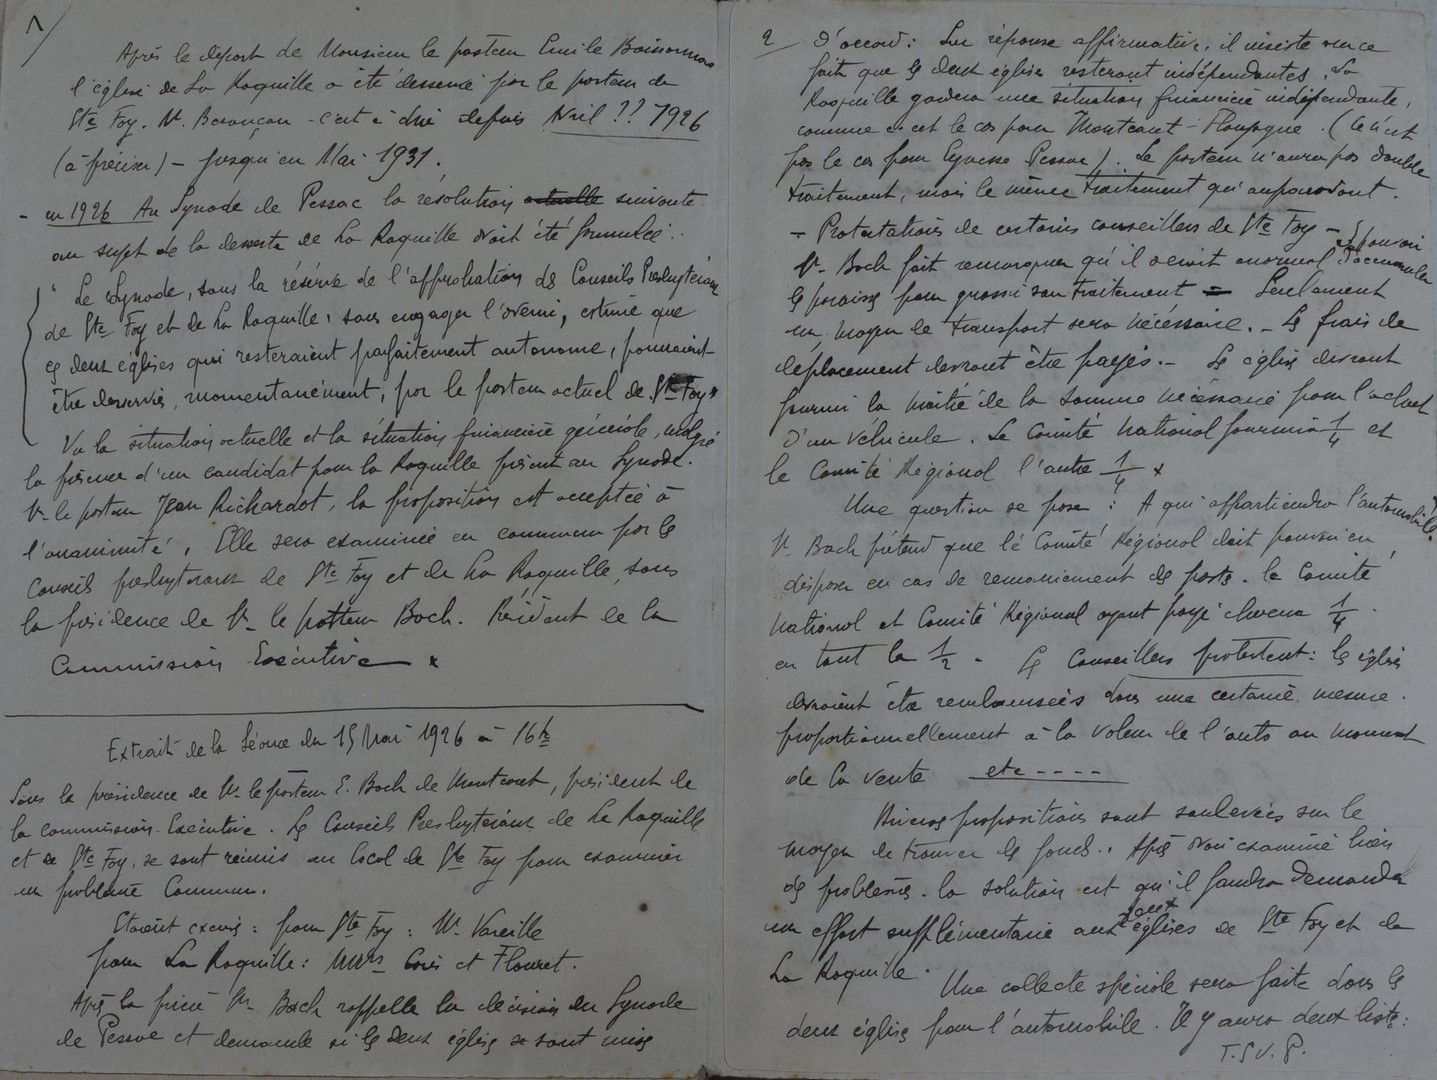 1/
Après le départ de Monsieur le pasteur Emile Boissonnas
l'église de La Roquille a été desservie par le pasteur de
Ste Foy. Mr. Besançon - c'est à dire depuis Avril ?? 1926
(à préciser) - jusqu'en Mai 1931.
- en 1926 Au Synode de Pessac la résolution actuelle suivante
au sujet de la desserte de La Roquille avait été formulée :
" Le Synode, sous la réserve de l'approbation des Conseils Presbytéraux
de Ste Foy et de La Roquille, sans engager l'avenir, estime que
ces deux églises qui resteraient parfaitement autonome, pourraient
être desservies, momentanément, par le pasteur actuel de Ste Foy"
Vu la situation actuelle et la situation financière générale, malgré
la présence d'un candidat pour la Roquille présent au Synode.
Mr le pasteur Jean Richardot, la proposition est acceptée à
l'unanimité. Elle sera examinée en commun par les
Conseils presbyteraux de Ste Foy et de La Roquille, sous
la présidence de Mr le pasteur Bach. Président de la
Commission Exécutive x
Extrait de la Séance du 15 Mai 1926 à 16h
Sous la présidence de Mr le pasteur E. Bach de Montcaut, président de
la commission Exécutive. Les Conseils Presbytéraux de La Roquille
et de Ste Foy, se sont réunis au local de Ste Foy pour examiner
un problème Commun.
Etaient excusés : pour Ste Foy : Mr. Vareille
pour La Roquille : MMrs et Flouret.
Après la prière Mr. Bach rappelle la décision du Synode
de Pessac et demande si les deux églises se sont mises
2/
D'accord : Sur réponse affirmative, il insiste sur ce
fait que les deux églises resteront indépendantes. La
Roquille gardera une situation financière indépendante,
comme c'est le cas pour Montcaut - . (Ce n'est
pas le cas pour Eynesse Pessac). Le pasteur n'aura pas double
traitement, mais le même traitement qu'auparavant.
- Protestations de certains conseillers de Ste Foy -
Mr. Bach fait remarquer qu'il serait anormal de pouvoir d'accumuler
les paroisses pour grossir son traitement = Seulement
un moyen de transport sera nécéssaire. - Les frais de
déplacement devront être payés. - Les églises devront
fournir la moitié de la somme nécéssaire pour l'achat
D'un véhicule. Le Comité National fournira 1/4 et
le Comité Régional l'autre 1/4 x
Une question se pose : A qui appartiendra l'automobile ?
Mr. Bach prétend que le Comité Régional doit pouvoir en
disposer en cas de remaniement de poste. le Comité
National et Comité Régional ayant payé chacun 1/4.
en tout la 1/2. Les Conseillers protestent : les églises
devraient être remboursées dans une certaine mesure.
proportionnellement à la valeur de l'auto au moment
de la vente etc ----
Diverses propositions sont soulevées sur le
moyen de trouver les fonds. Après avoir examiné bien
des problèmes. la solution est qu'il faudra demander
un effort supplémentaire aux deux églises de Ste Foy et de
La Roquille.
Une collecte spéciale sera faite dans les
deux églises pour l'automobile. Il y aura deux listes :
T.S.V.P.